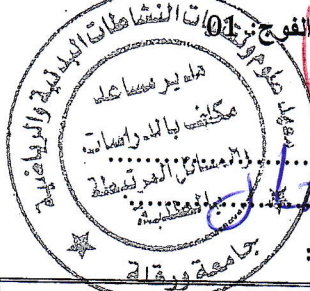 الفوج: 01
معهد علوم وتقنيات النشاطات البدنية والرياضية
مدير مساعد
مكلف بالدراسات
والمسائل المرتبطة
بالطلبة
جامعة ورقلة